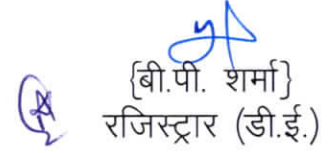 {बी.पी. शर्मा}
रजिस्ट्रार (डी.ई.)